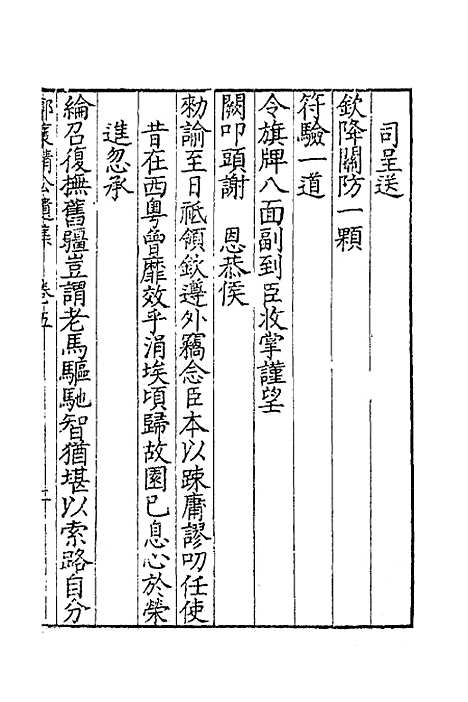 司呈送
欽降關防一顆
符驗一道
令旗牌八面副到臣收掌謹望
闕叩頭謝 恩恭俟
勑諭至日祗領欽遵外竊念臣本以踈庸謬叨任使
昔在西粵曾靡效乎涓埃頃歸故園已息心於榮
進忽承
綸召復撫舊疆豈謂老馬驅馳智猶堪以索路自分
郭襄靖公遺集 卷五